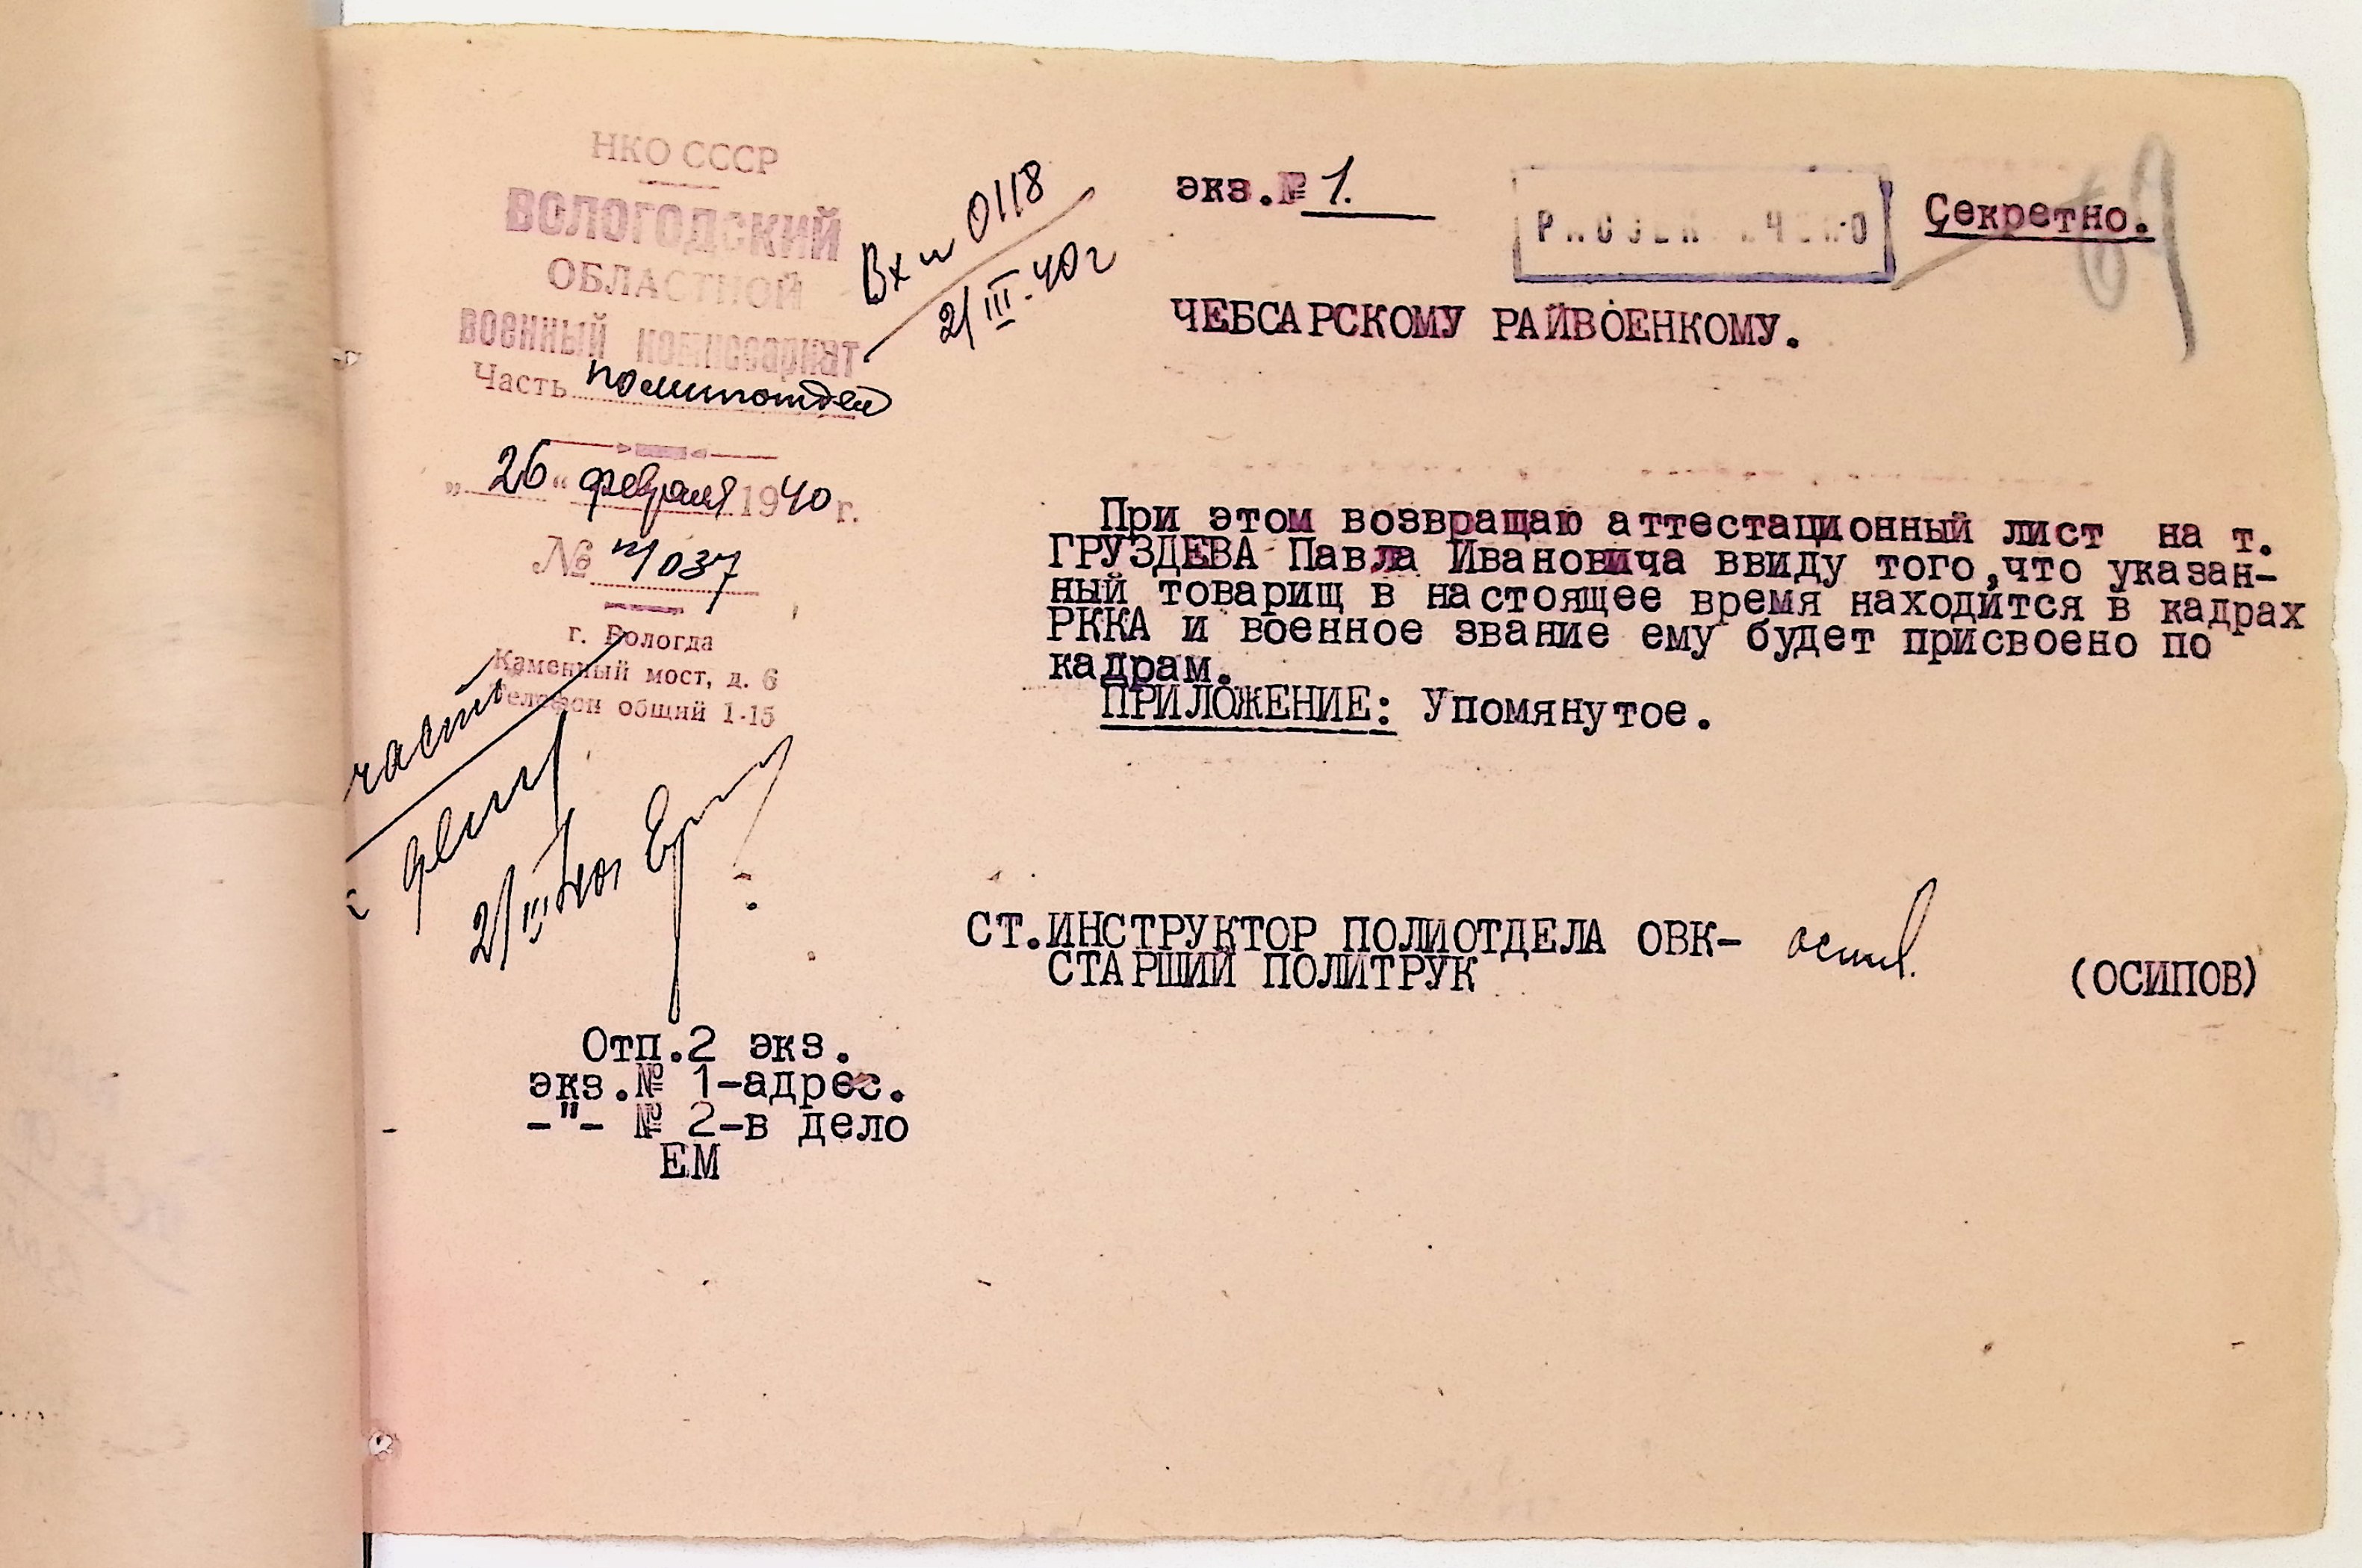 НКО СССР
ВОЛОГОДСКИЙ
ОБЛАСТНОЙ
ВОЕННЫЙ КОМИССАРИАТ
Часть политотдел
„26“ февраля 1940 г.
№ 037
г. Вологда
Каменный мост, д. 6
Телефон общий 1-15
Вх 0118
2/III-40г
экз.№ 1.
Секретно.
ЧЕБСАРСКОМУ РАЙВОЕНКОМУ.
При этом возвращаю аттестационный лист на т.
ГРУЗДЕВА Павла Ивановича ввиду того,что указан-
ный товарищ в настоящее время находится в кадрах
РККА и военное звание ему будет присвоено по
кадрам.
ПРИЛОЖЕНИЕ: Упомянутое.
части
2/III
СТ.ИНСТРУКТОР ПОЛИОТДЕЛА ОВК-
СТАРШИЙ ПОЛИТРУК
(ОСИПОВ)
Отп.2 экз.
экз.№ 1-адрес.
-"- № 2-в дело
ЕМ